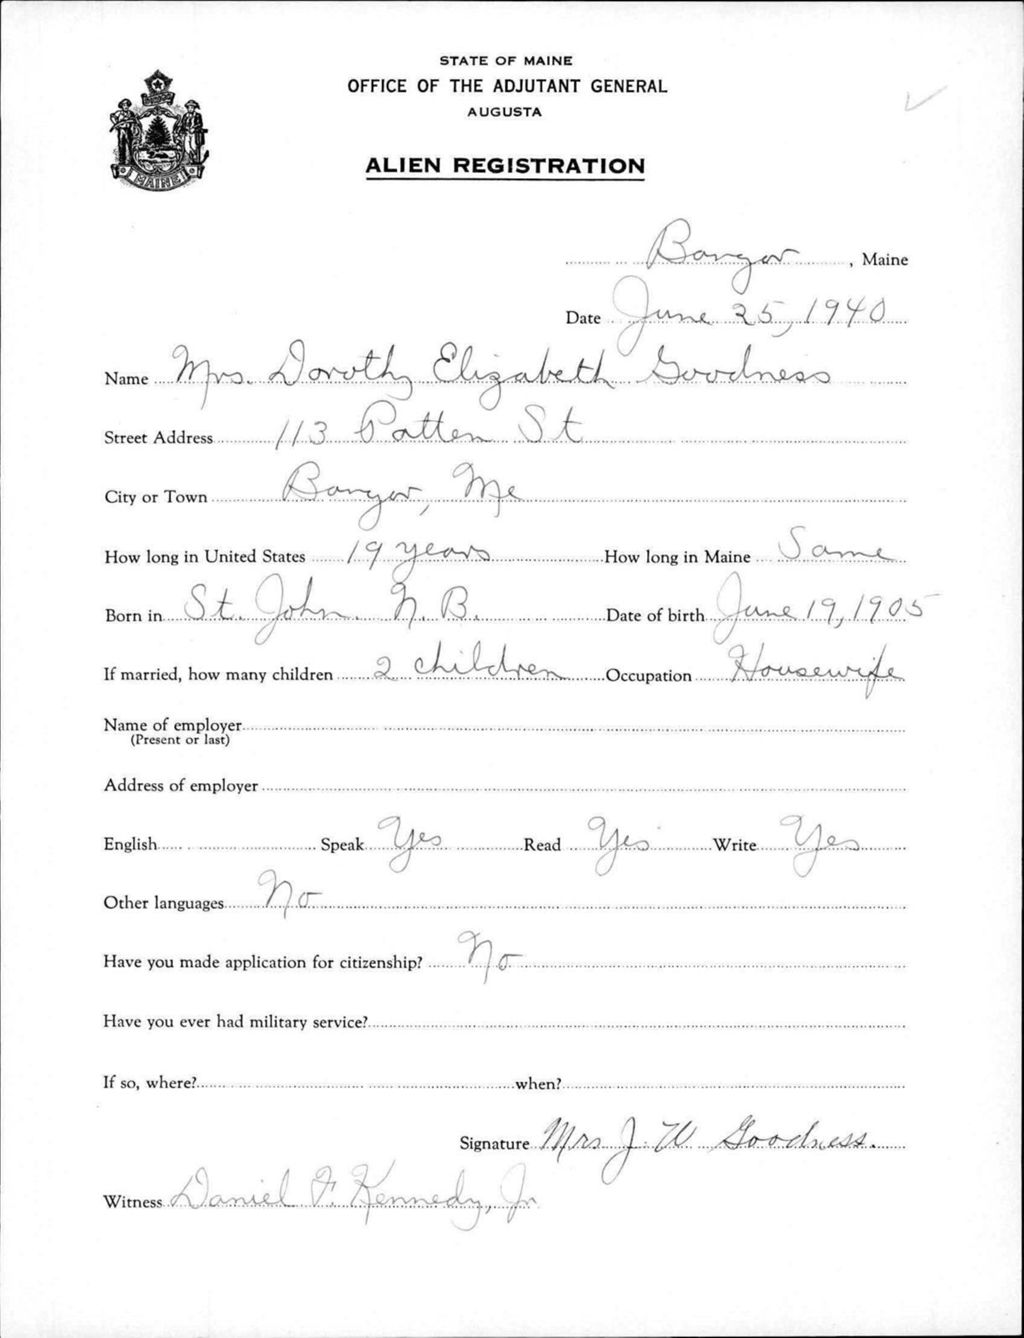 STATE OF MAINE
OFFICE OF THE ADJUTANT GENERAL
AUGUSTA
ALIEN REGISTRATION
MAINE
Bangor, Maine
Date June 25, 1940
Name Mrs. Dorothy Elizabeth Goodness
Street Address 113 Patten St
City or Town Bangor, Me
How long in United States 19 years How long in Maine Same
Born in St. John. N. B. Date of birth June 19, 1905
If married, how many children 2 children Occupation Housewife
Name of employer
(Present or last)
Address of employer
English Speak Yes Read Yes Write Yes
Other languages No
Have you made application for citizenship? No
Have you ever had military service?
If so, where? when?
Signature Mrs J. W Goodness.
Witness Daniel F. Kennedy, Jr